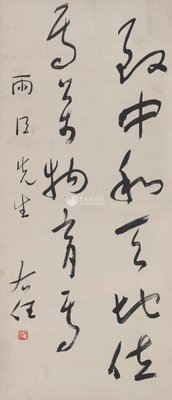 致中和天地位
焉萬物育焉
雨臣先生
右任